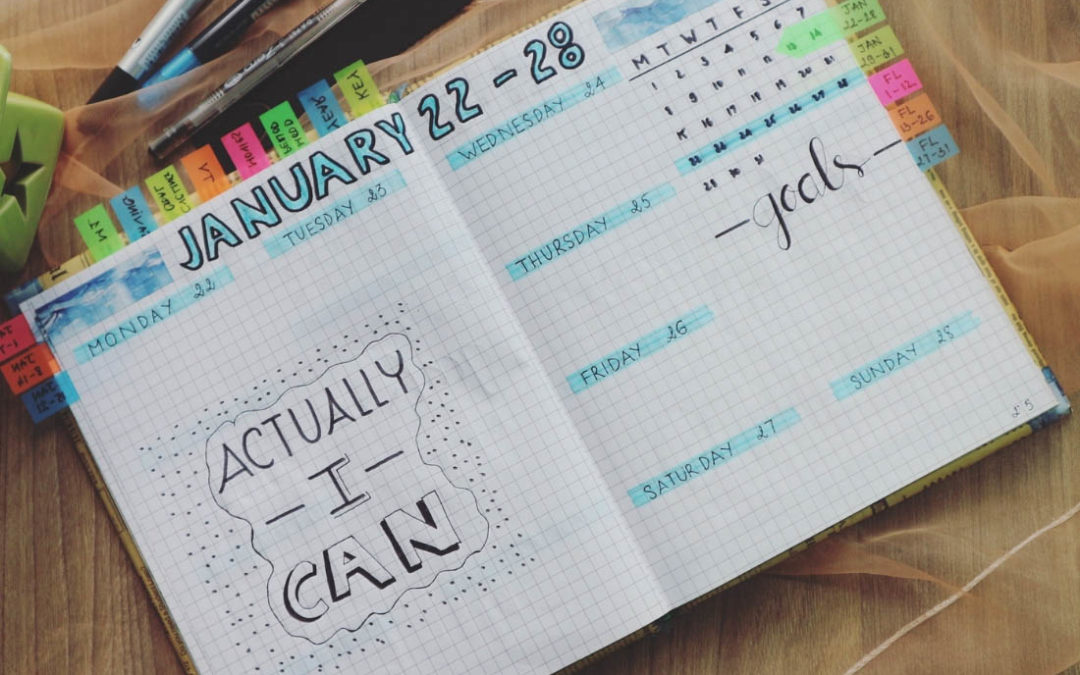 KEY
JANUARY 22-28
MONDAY 22
TUESDAY 23
ACTUALLY
- I -
CAN
JAN
8-14
JAN
WEDNESDAY 24
THURSDAY 25
FRIDAY 26
SATURDAY 27
SUNDAY 28
M T W T F S
1 2 3 4 5 6 7
8 9 10 11 12 13 14
15 16 17 18 19 20 21
22 23 24 25 26 27 28
29 30 31
- goals -
JAN
22-28
JAN
29-31
FL
1-12
FL
13-26
FL
27-31
25